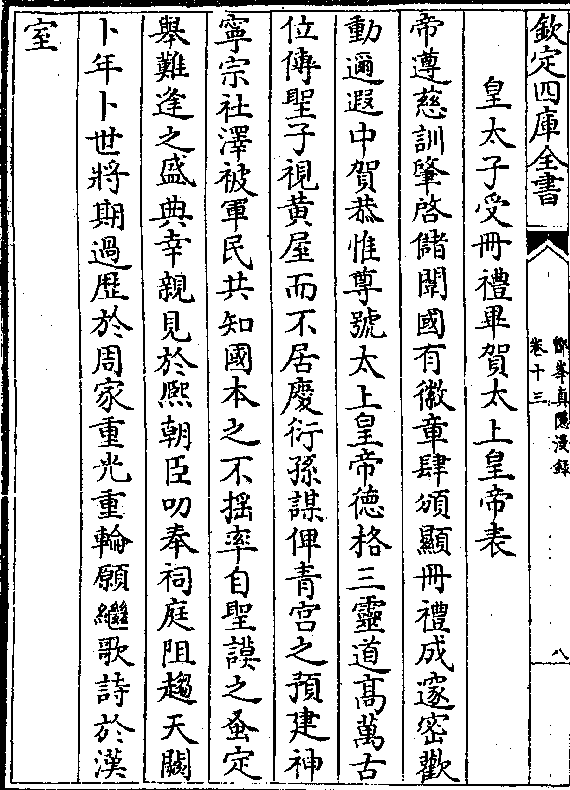 欽定四庫全書
鄮峯真隱漫錄
卷十三
八
皇太子受冊禮畢賀太上皇帝表
帝遵慈訓肇啓儲闈國有徽章肆頒顯冊禮成邃密歡
動邇遐中賀恭惟尊號太上皇帝德格三靈道髙萬古
位傳聖子視黄屋而不居慶衍孫謀俾青宫之預建神
寧宗社澤被軍民共知國本之不揺率自聖謨之蚤定
舉難逢之盛典幸親見於熈朝臣叨奉祠庭阻趨天闕
卜年卜世將期過歴於周家重光重輪願繼歌詩於漢
室